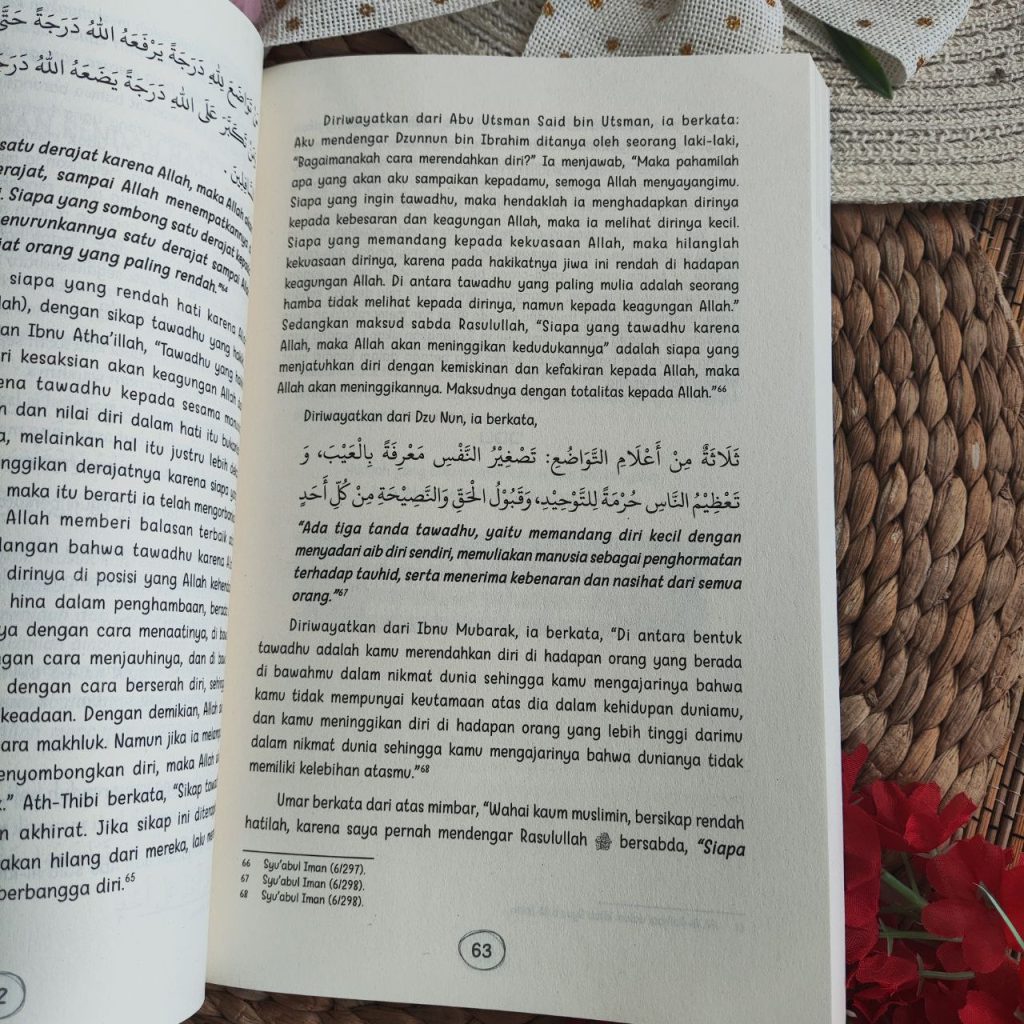 تَوَاضَعَ لِلَّهِ دَرَجَةً يَرْفَعَهُ اللَّهُ دَرَجَةً حَتَّى
تَكَبَّرَ عَلَى اللَّهِ دَرَجَةً يَضَعَهُ اللَّهُ
satu derajat karena Allah, maka Allah
sampai Allah menempatkannya
Siapa yang sombong satu derajat
satu derajat sampai
orang yang paling rendah."64
siapa yang rendah hati karena
dengan sikap tawadhu yang
Ibnu Atha'illah, "Tawadhu yang
kesaksian akan keagungan Allah
tawadhu kepada sesama
dan nilai diri dalam hati itu
melainkan hal itu justru lebih
derajatnya karena siapa
maka itu berarti ia telah
Allah memberi balasan terbaik
bahwa tawadhu karena
dirinya di posisi yang Allah
hina dalam penghambaan,
dengan cara menaatinya, di
cara menjauhinya, dan di
dengan cara berserah diri,
keadaan. Dengan demikian, Allah
makhluk. Namun jika ia
diri, maka Allah
Ath-Thibi berkata, "Sikap
akhirat. Jika sikap ini
akan hilang dari mereka, lalu
berbangga diri.65
2
Diriwayatkan dari Abu Utsman Said bin Utsman, ia berkata:
Aku mendengar Dzunnun bin Ibrahim ditanya oleh seorang laki-laki,
"Bagaimanakah cara merendahkan diri?" Ia menjawab, "Maka pahamilah
apa yang akan aku sampaikan kepadamu, semoga Allah menyayangimu.
Siapa yang ingin tawadhu, maka hendaklah ia menghadapkan dirinya
kepada kebesaran dan keagungan Allah, maka ia melihat dirinya kecil.
Siapa yang memandang kepada kekuasaan Allah, maka hilanglah
kekuasaan dirinya, karena pada hakikatnya jiwa ini rendah di hadapan
keagungan Allah. Di antara tawadhu yang paling mulia adalah seorang
hamba tidak melihat kepada dirinya, namun kepada keagungan Allah."
Sedangkan maksud sabda Rasulullah, "Siapa yang tawadhu karena
Allah, maka Allah akan meninggikan kedudukannya" adalah siapa yang
menjatuhkan diri dengan kemiskinan dan kefakiran kepada Allah, maka
Allah akan meninggikannya. Maksudnya dengan totalitas kepada Allah."66
Diriwayatkan dari Dzu Nun, ia berkata,
ثَلَاثَةٌ مِنْ أَعْلَامِ التَّوَاضُعِ: تَصْغِيْرُ النَّفْسِ مَعْرِفَةً بِالْعَيْبَ، وَ
تَعْظِيْمُ النَّاسِ حُرْمَةً لِلتَّوْحِيْدِ، وَقَبُوْلُ الْحَقِّ وَالنَّصِيْحَةِ مِنْ كُلِّ أَحَدٍ
"Ada tiga tanda tawadhu, yaitu memandang diri kecil dengan
menyadari aib diri sendiri, memuliakan manusia sebagai penghormatan
terhadap tauhid, serta menerima kebenaran dan nasihat dari semua
orang."67
Diriwayatkan dari Ibnu Mubarak, ia berkata, "Di antara bentuk
tawadhu adalah kamu merendahkan diri di hadapan orang yang berada
di bawahmu dalam nikmat dunia sehingga kamu mengajarinya bahwa
kamu tidak mempunyai keutamaan atas dia dalam kehidupan duniamu,
dan kamu meninggikan diri di hadapan orang yang lebih tinggi darimu
dalam nikmat dunia sehingga kamu mengajarinya bahwa dunianya tidak
memiliki kelebihan atasmu."68
Umar berkata dari atas mimbar, "Wahai kaum muslimin, bersikap rendah
hatilah, karena saya pernah mendengar Rasulullah ﷺ bersabda, "Siapa
66 Syu'abul Iman (6/297).
67 Syu'abul Iman (6/298).
68 Syu'abul Iman (6/298).
63